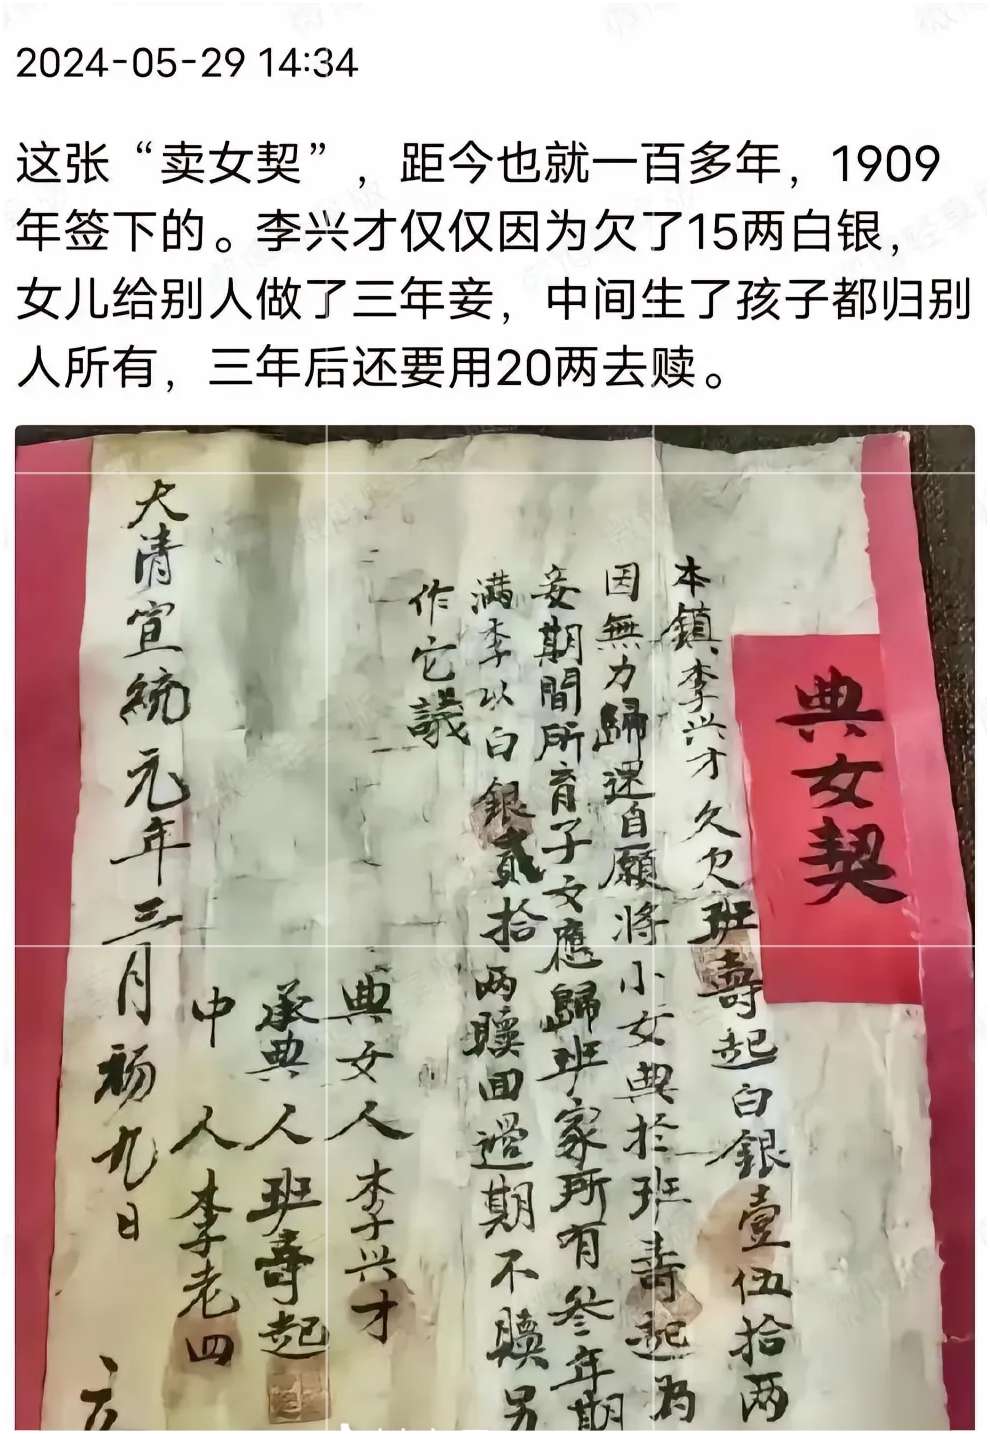 2024-05-29 14:34
这张“卖女契”，距今也就一百多年，1909
年签下的。李兴才仅仅因为欠了15两白银，
女儿给别人做了三年妾，中间生了孩子都归别
人所有，三年后还要用20两去赎。
典女契
本鎮李兴才久欠班壽起白銀壹伍拾两
因無力歸還自願將小女典於班壽起為
妾期間所育子女應歸班家所有叁年期
满李以白銀貳拾两贖回過期不贖另
作它議
典女人李兴才
承典人班壽起
中人李老四
大清宣統元年三月初九日立